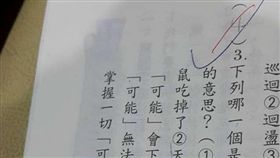 巡迴②迴盪
3.下列哪一個是
的意思？（①
鼠吃掉了②天
「可能」會下
「可能」無法
掌握一切「可